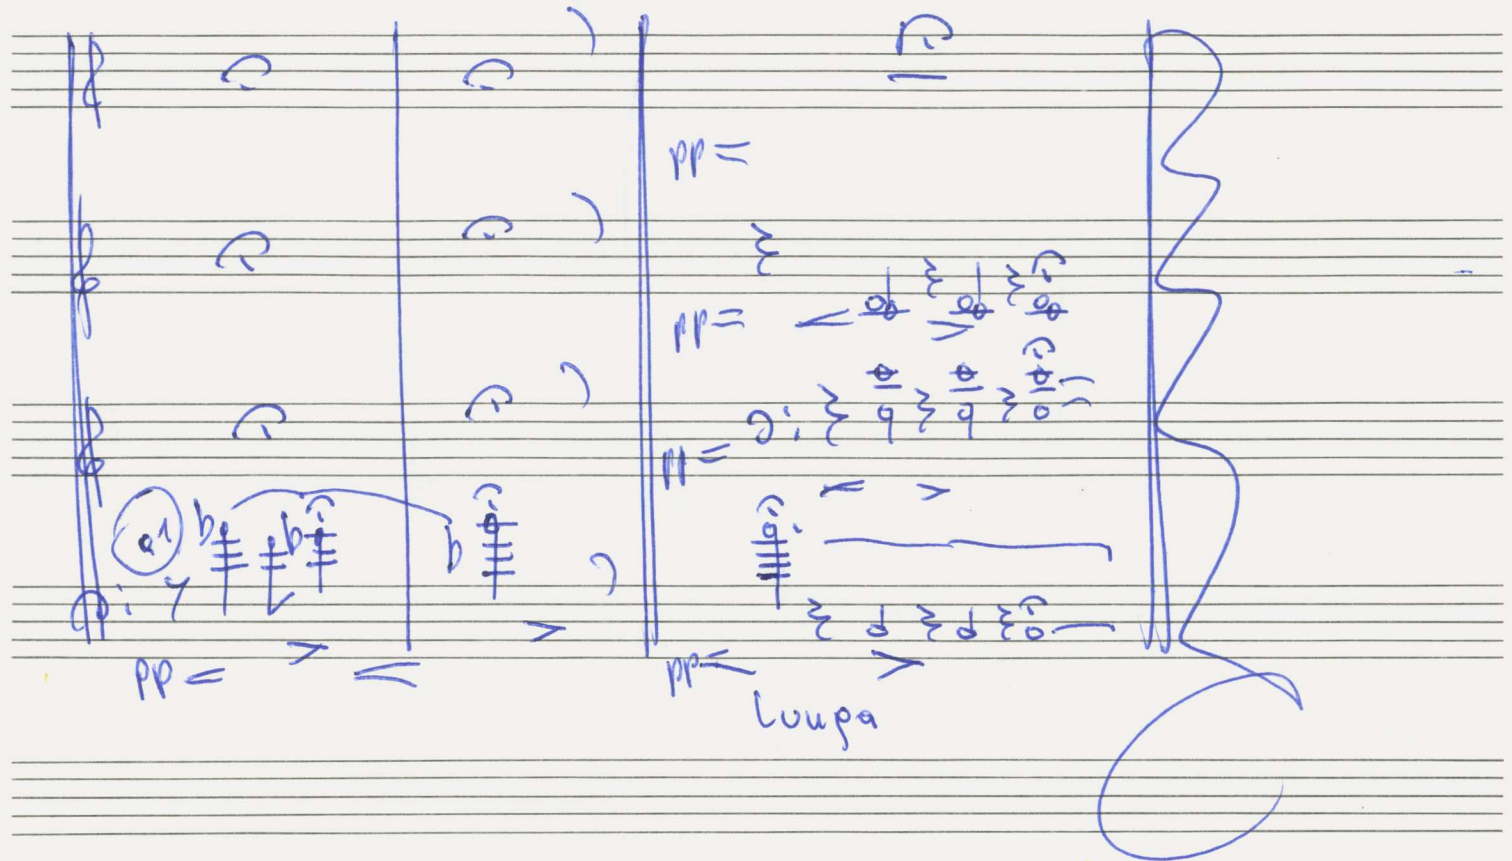 pp
pp
pp
a1
pp
pp
Lunga